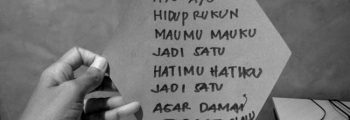 HIDUP RUKUN
MAUMU MAUKU
JADI SATU
HATIMU HATIKU
JADI SATU
AGAR DAMAI